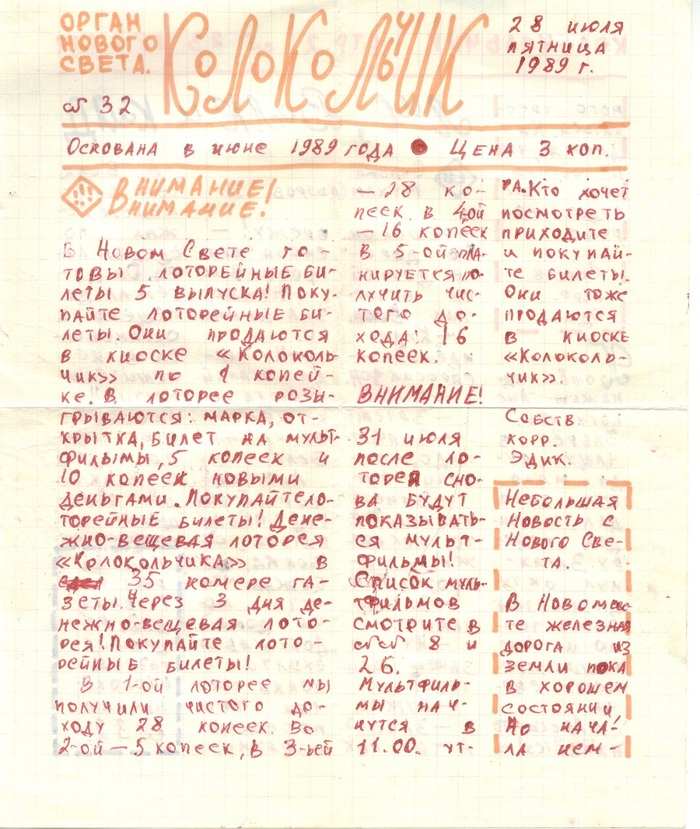 ОРГАН
НОВОГО
СВЕТА.
№ 32
КОЛОКОЛЬЧИК
28 ИЮЛЯ
ПЯТНИЦА
1989 г.
ОСНОВАНА В ИЮНЕ 1989 ГОДА ● ЦЕНА 3 КОП.
ВНИМАНИЕ!
ВНИМАНИЕ!
В НОВОМ СВЕТЕ ГО-
ТОВЫ ЛОТОРЕЙНЫЕ БИ-
ЛЕТЫ 5 ВЫПУСКА! ПОКУ-
ПАЙТЕ ЛОТОРЕЙНЫЕ БИ-
ЛЕТЫ. ОНИ ПРОДАЮТСЯ
В КИОСКЕ «КОЛОКОЛЬ-
ЧИК» ПО 1 КОПЕЙ-
КЕ! В ЛОТОРЕЕ РОЗЫ-
ГРЫВАЮТСЯ: МАРКА, ОТ-
КРЫТКА, БИЛЕТ НА МУЛЬТ-
ФИЛЬМЫ, 5 КОПЕЕК И
10 КОПЕЕК НОВЫМИ
ДЕНЬГАМИ. ПОКУПАЙТЕ ЛО-
ТОРЕЙНЫЕ БИЛЕТЫ! ДЕНЕ-
ЖНО-ВЕЩЕВАЯ ЛОТОРЕЯ
«КОЛОКОЛЬЧИКА» В
35 НОМЕРЕ ГА-
ЗЕТЫ. ЧЕРЕЗ 3 ДНЯ ДЕ-
НЕЖНО-ВЕЩЕВАЯ ЛОТО-
РЕЯ! ПОКУПАЙТЕ ЛОТО-
РЕЙНЫЕ БИЛЕТЫ!
В 1-ОЙ ЛОТОРЕЕ МЫ
ПОЛУЧИЛИ ЧИСТОГО ДО-
ХОДУ 28 КОПЕЕК. ВО
2-ОЙ — 5 КОПЕЕК, В 3-ЬЕЙ
— 28 КО-
ПЕЕК. В 4ОЙ
— 16 КОПЕЕК
В 5-ОЙ ПЛА-
НИРУЕТСЯ ПО-
ЛУЧИТЬ ЧИС-
ТОГО ДО-
ХОДА: 16
КОПЕЕК.
ВНИМАНИЕ!
31 ИЮЛЯ
ПОСЛЕ ЛО-
ТОРЕЯ СНО-
ВА БУДУТ
ПОКАЗЫВАТЬ-
СЯ МУЛЬТ-
ФИЛЬМЫ!
СПИСОК МУЛЬ-
ТФИЛЬМОВ
СМОТРИТЕ В
№№ 8 И
26.
МУЛЬТФИЛЬ-
МЫ НАЧ-
НУТСЯ В
11.00. УТ-
РА. КТО ХОЧЕТ
ПОСМОТРЕТЬ
ПРИХОДИТЕ
И ПОКУПАЙ-
ТЕ БИЛЕТЫ!
ОНИ ТОЖЕ
ПРОДАЮТСЯ
В КИОСКЕ
«КОЛОКОЛЬ-
ЧИК».
СОБСТВ.
КОРР.
ЭДИК.
НЕБОЛЬШАЯ
НОВОСТЬ С
НОВОГО СВЕ-
ТА.
В НОВОМ СВЕ-
ТЕ ЖЕЛЕЗНАЯ
ДОРОГА ИЗ
ЗЕМЛИ ПОКА
В ХОРОШЕМ
СОСТОЯНИИ
НО НАЧА-
ЛА НЕМ-